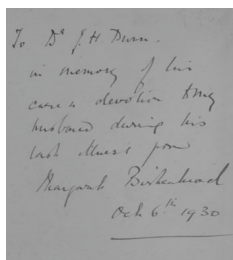 To Dr J. H. Dunn.
in memory of his
care & devotion to my
husband during his
last illness from
Margaret Birkenhead
Oct 6th 1930